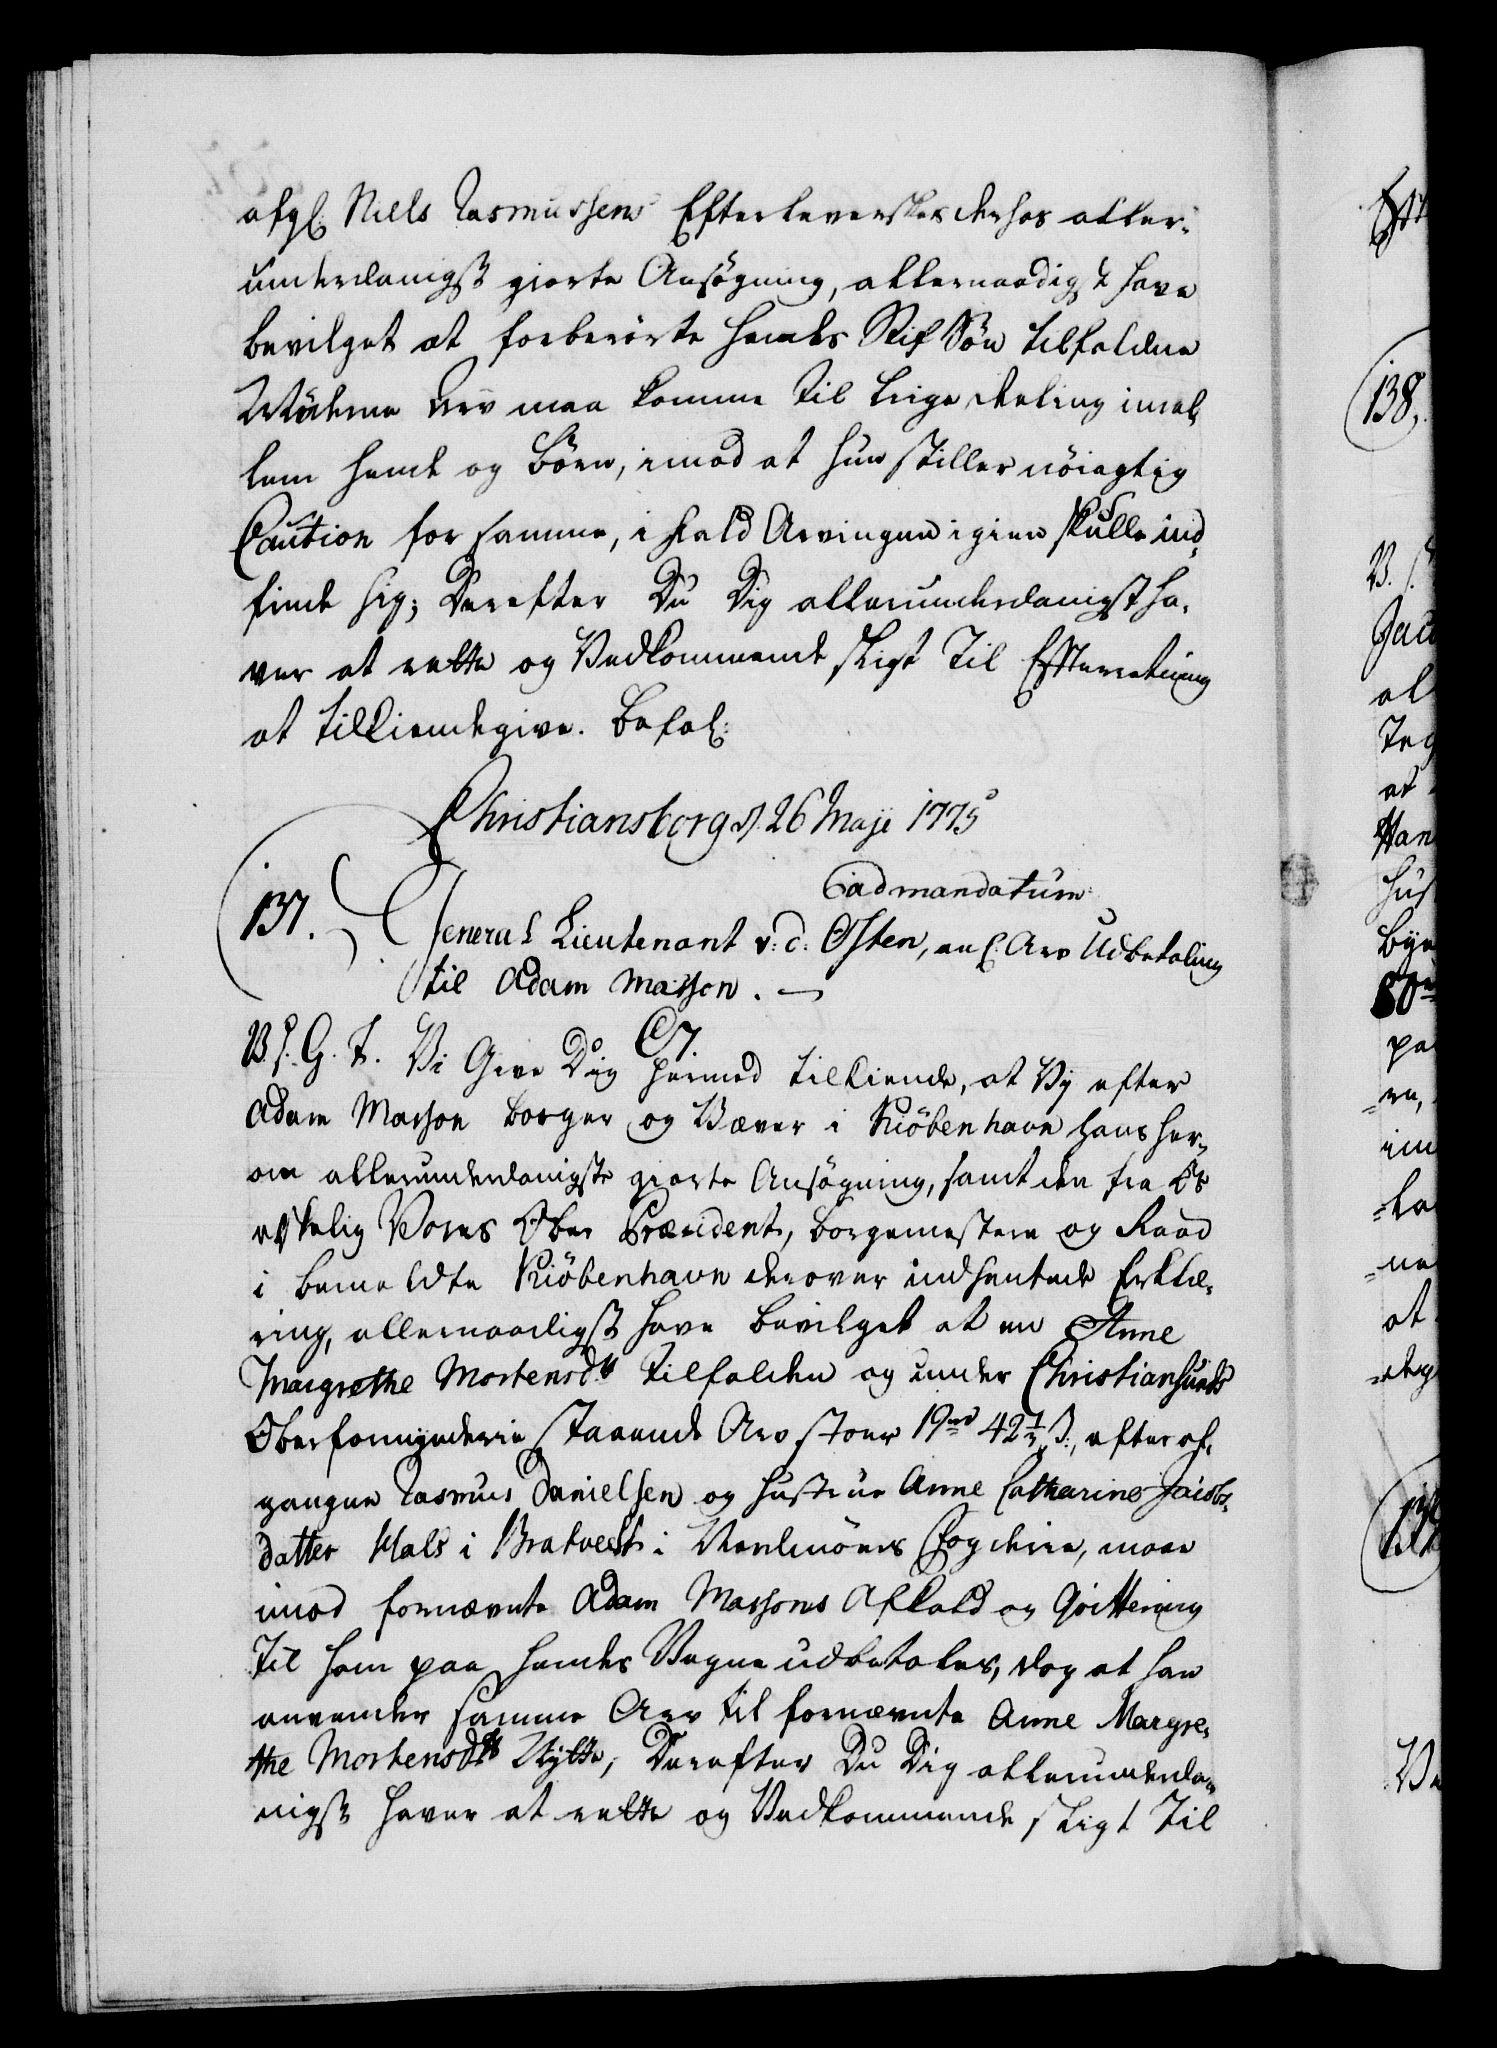 afgl: Niels Rasmussens Efterleverskes derhos aller-
underdanigst giorte Ansøgning, allernaadigst have
bevilget at forberørte hendes Stif Søn tilfaldne
Mødrene Arv maa komme til lige deeling imel-
lem hende og Børn, imod at hun stiller nöiagtig
Caution for samme, i fald Arvingen igien skulle ind-
finde sig; Derefter Du Dig allerunderdanigst ha-
ver at rette og Vedkommende sligt til Efterretning
at tilkiendegive. Befal:
Christiansborg d. 26 Maji 1775
ad mandatum
137.
General Lieutenant v: d: Osten, anl: Arv Udbetaling
til Adam Masson. —
C7.
V. s. G. T. Vi Give Dig hermed tilkiende, at Vy efter
Adam Masson borger og Væver i Kiöbenhavn hans her-
om allerunderdanigste giorte Ansøgning, samt den fra Os
elskelig Vores Ober Præsident, borgemestere og Raad
i bemeldte Kiöbenhavn derover indhentede Erklæ-
ring, allernaadigst have bevilget at en Anne
Margrethe Mortensdtr tilfalden og under Christiansunds
Oberformynderie staaende Arv stoer 19rd 42 1/2 s:, efter af-
gangne Rasmus Danielsen og hustrue Anne Catharine Jacobs-
datter Hals i Bratvedt i Nordmörs Fogderie, maae
imod fornævnte Adam Massons Afkald og Qvittering
til ham paa hendes Vegne udbetales, dog at han
anvender samme Arv til fornævnte Anne Margre-
the Mortensdtrs Nytte; Derefter Du Dig allerunderda-
nigst haver at rette og Vedkommende sligt til
138.
V. s.
Jac
al
Teg
at
Han
hus
Bye
80
pa
re,
im
la
ne
at
deg
Ve